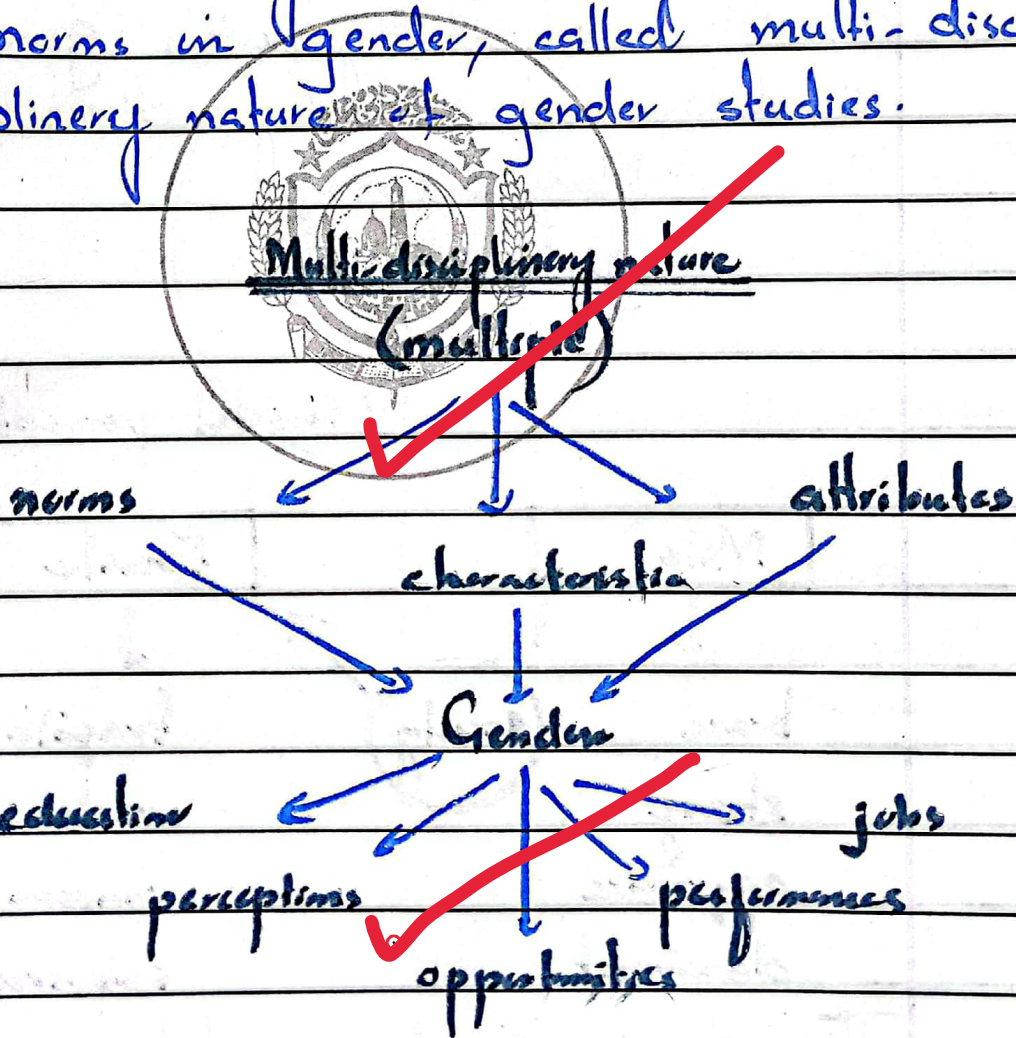 norms in gender, called multi-disc
plinery nature of gender studies.
Multi-disciplinery nature
(multiple)
norms attributes
characteristic
Gender
education jobs
perceptions performences
opportunities